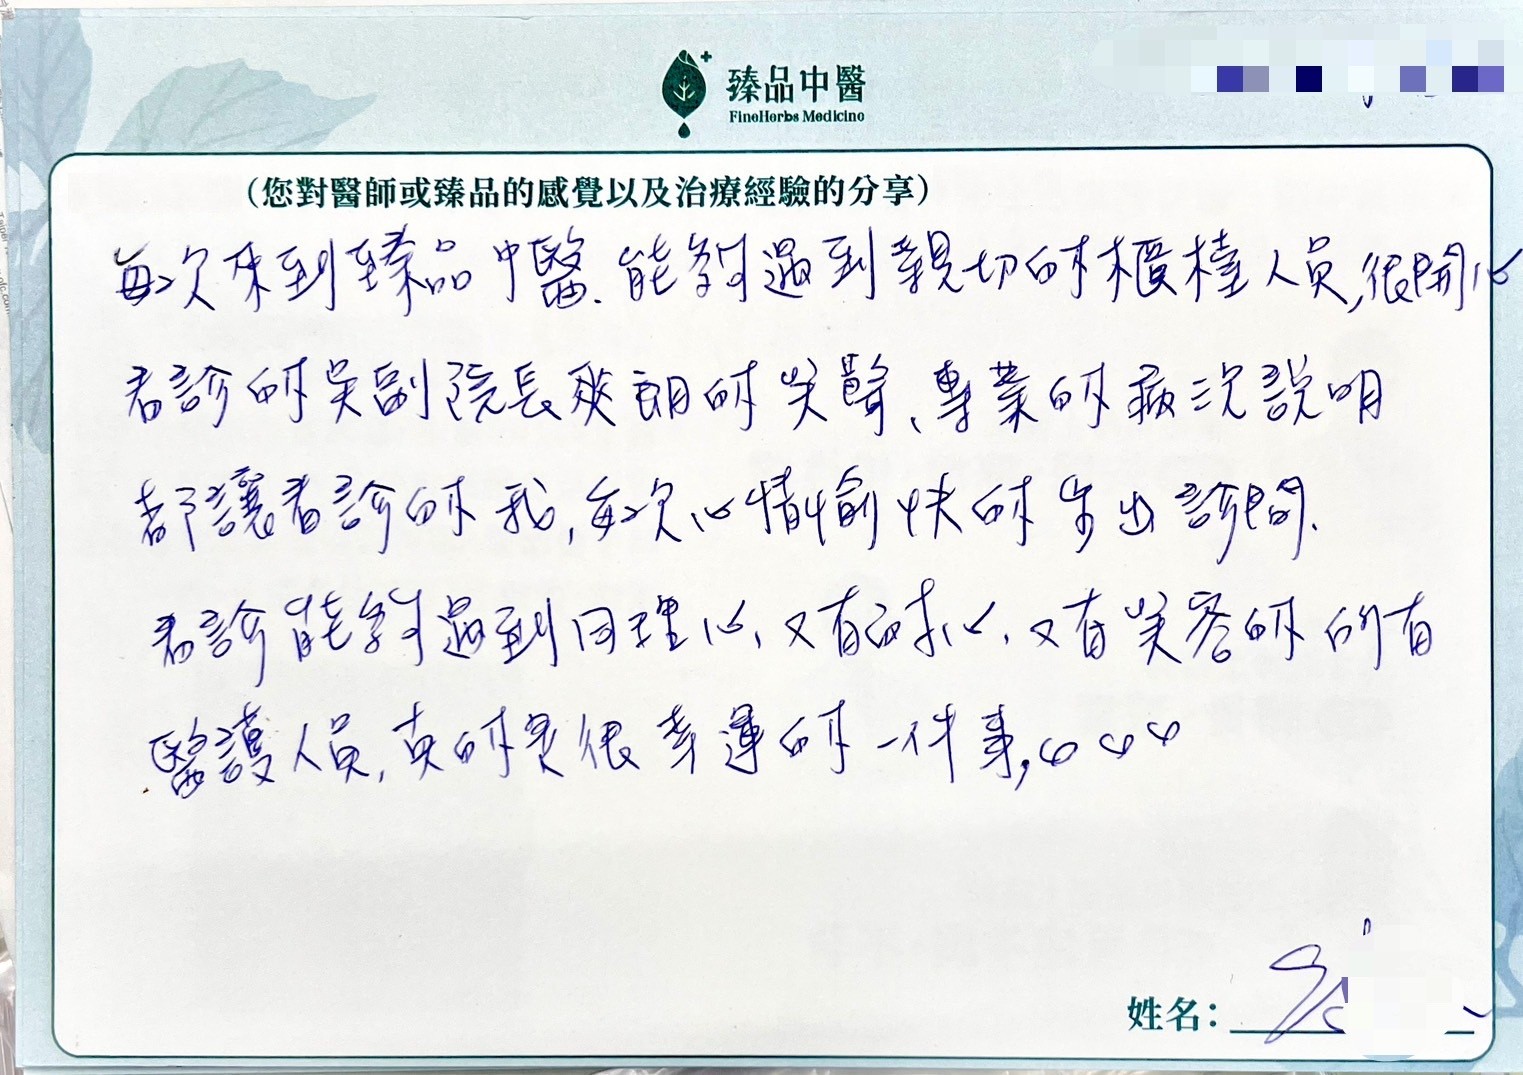 臻品中醫
FineHerbs Medicine
(您對醫師或臻品的感覺以及治療經驗的分享)
每次來到臻品中醫.能夠遇到親切的櫃檯人員,很開心
看診的吳副院長爽朗的笑聲、專業的病況說明
都讓看診的我,每次心情愉快的步出診間.
看診能夠遇到同理心,又有耐心,又有笑容的所有
醫護人員,真的是很幸運的一件事,
姓名: